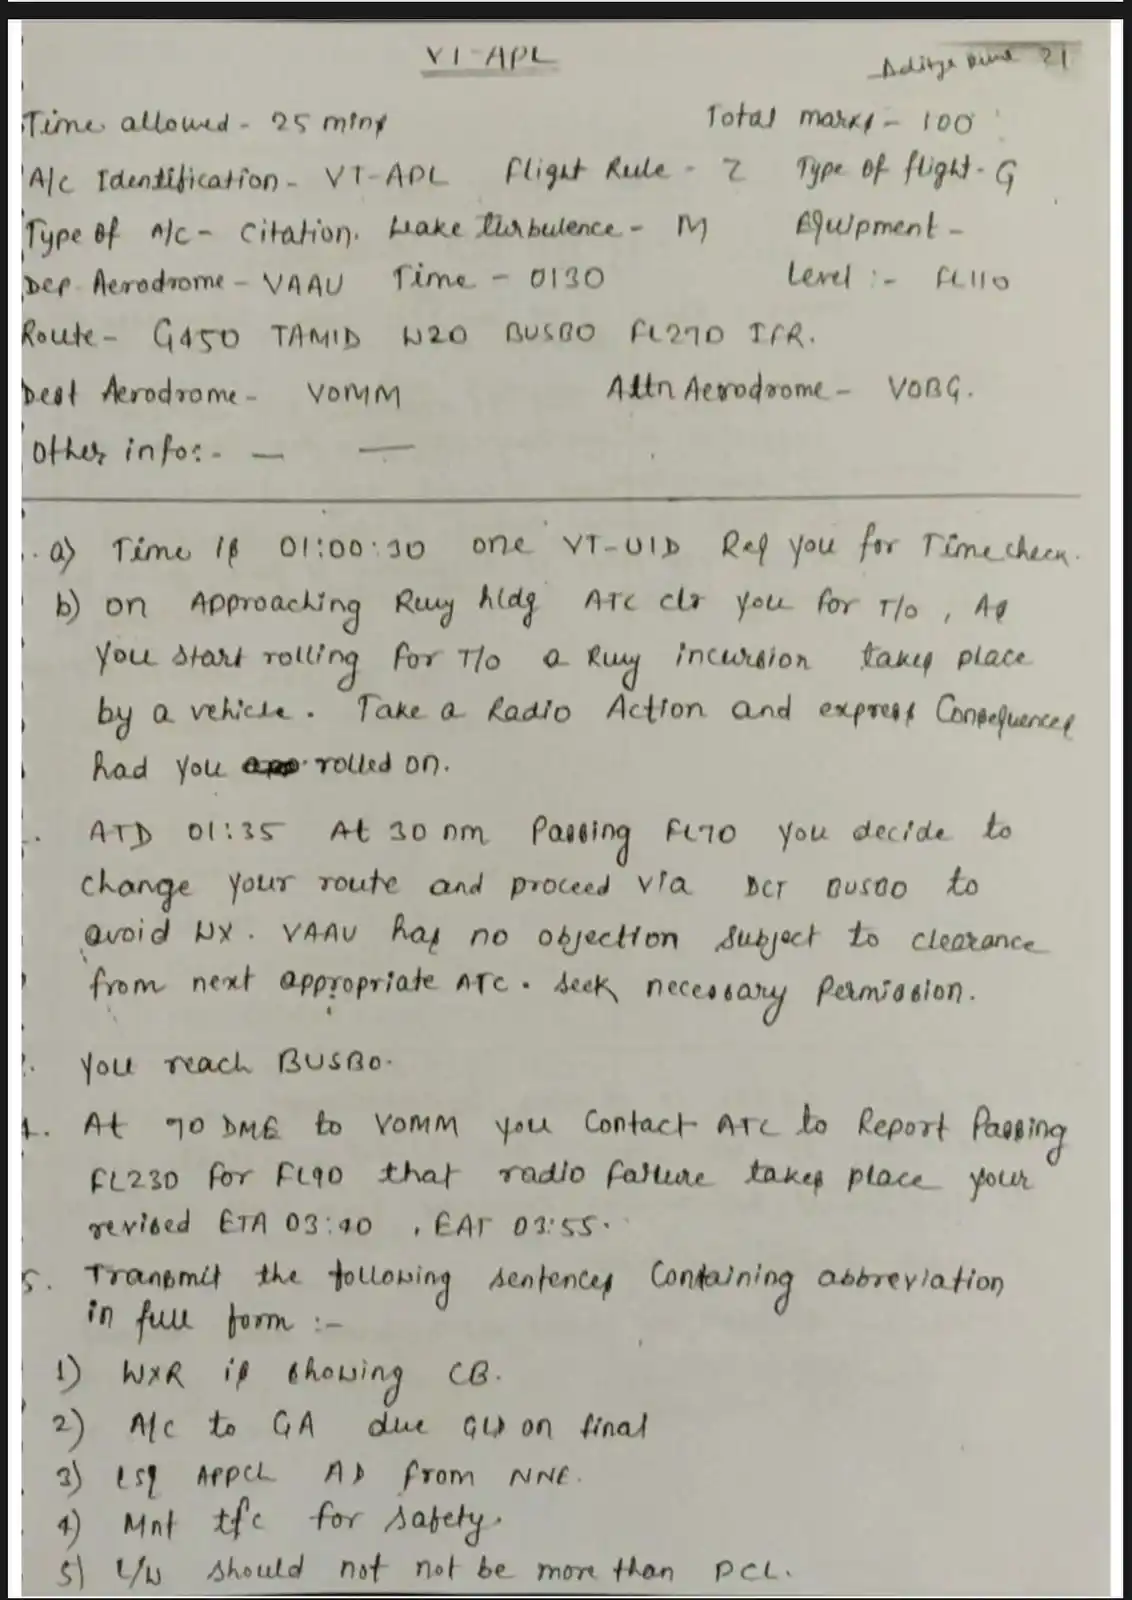 VT-APL
Aditya 21
Time allowed - 25 mins Total marks - 100
A/c Identification - VT-APL Flight Rule - Z Type of flight - G
Type of A/c - Citation. Wake turbulence - M Equipment -
Dep Aerodrome - VAAU Time - 0130 Level :- FL110
Route - G450 TAMID W20 BUSBO FL270 IFR.
Dest Aerodrome - VOMM Altn Aerodrome - VOBG.
Other info:- — —
a) Time is 01:00:30 one VT-UID Req you for Time check.
b) on Approaching Rwy hldg ATC clr you for T/o, As
you start rolling for T/o a Rwy incursion takes place
by a vehicle. Take a Radio Action and express Consequences
had you rolled on.
ATD 01:35 At 30 nm Passing FL70 you decide to
change your route and proceed via DCT BUSBO to
avoid WX. VAAU has no objection subject to clearance
from next appropriate ATC. Seek necessary Permission.
You reach BUSBO.
4. At 70 DME to VOMM you Contact ATC to Report Passing
FL230 for FL90 that radio failure takes place your
revised ETA 03:40, EAT 03:55.
5. Transmit the following sentences Containing abbreviation
in full form :-
1) WXR is showing CB.
2) A/c to GA due GW on final
3) LSQ APPCH AD from NNE.
4) Mnt tfc for safety.
5) L/W should not not be more than PCL.